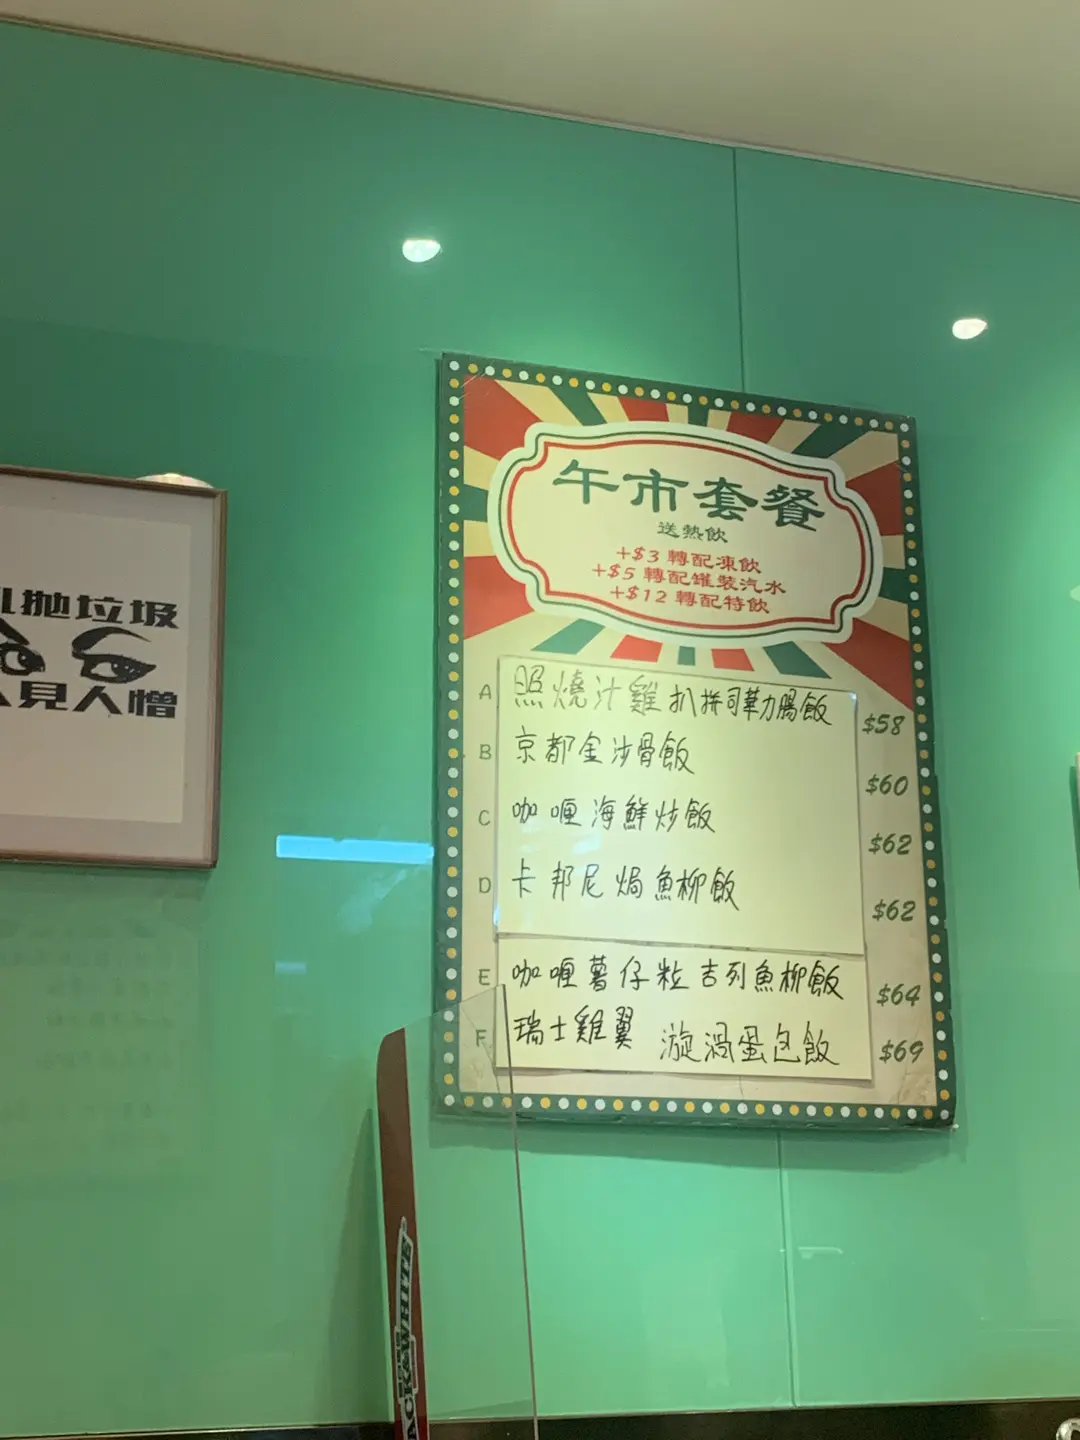 拋垃圾
見人憎
午市套餐
送熱飲
+$3 轉配凍飲
+$5 轉配罐裝汽水
+$12 轉配特飲
A 照燒汁雞扒拼司華力腸飯 $58
B 京都金沙骨飯 $60
C 咖喱海鮮炒飯 $62
D 卡邦尼焗魚柳飯 $62
E 咖喱薯仔粒吉列魚柳飯 $64
F 瑞士雞翼 漩渦蛋包飯 $69